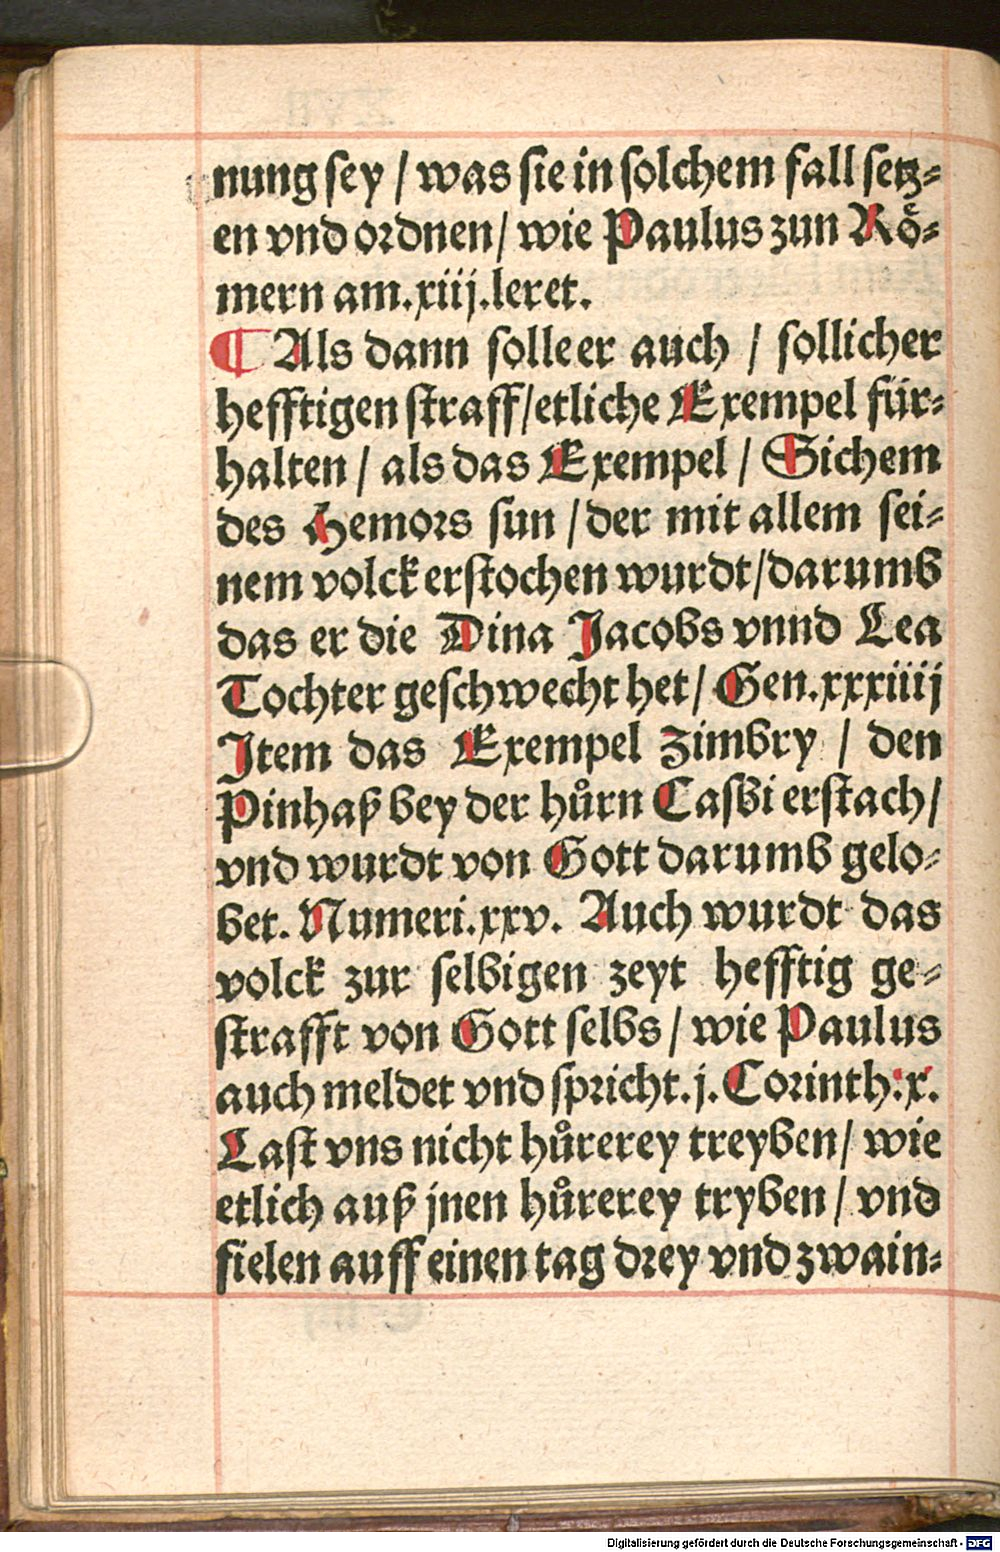 nung sey / was sie in solchem fall setz⸗
en vnd ordnen / wie Paulus zun Rö⸗
mern am .xiij. leret.
¶ Als dann solle er auch / sollicher
hefftigen straff / etliche Exempel für⸗
halten / als das Exempel / Sichem
des Hemors sun / der mit allem sei⸗
nem volck erstochen wurdt / darumb
das er die Dina Jacobs vnnd Lea
Tochter geschwecht het / Gen. xxxiiij
Item das Exempel Zimbry / den
Pinhaß bey der hůrn Casbi erstach /
vnd wurdt von Gott darumb gelo⸗
bet. Numeri. xxv. Auch wurdt das
volck zur selbigen zeyt hefftig ge⸗
strafft von Gott selbs / wie Paulus
auch meldet vnd spricht .j. Corinth: x.
Last vns nicht hůrerey treyben / wie
etlich auß jnen hůrerey tryben / vnd
fielen auff einen tag drey vnd zwain⸗
Digitalisierung gefördert durch die Deutsche Forschungsgemeinschaft - DFG